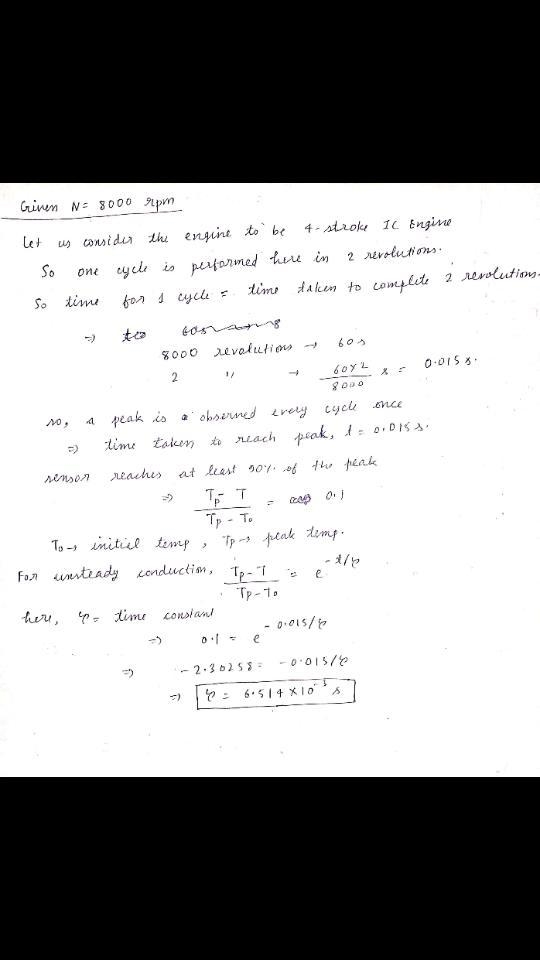 Given N = 8000 rpm
Let us consider the engine to be 4-stroke IC Engine
So one cycle is performed here in 2 revolutions.
So time for 1 cycle = time taken to complete 2 revolutions.
⇒
8000 revolutions → 60 s
2 " → 60×2/8000 s = 0.015 s.
so, a peak is observed every cycle once
⇒ time taken to reach peak, t = 0.015 s.
sensor reaches at least 90% of the peak
⇒ Tp - T / Tp - To = 0.1
To → initial temp, Tp → peak temp.
For unsteady conduction, Tp - T / Tp - To = e^-t/τ
here, τ = time constant
⇒ 0.1 = e^-0.015/τ
⇒ -2.30258 = -0.015/τ
⇒ τ = 6.514 × 10^-3 s